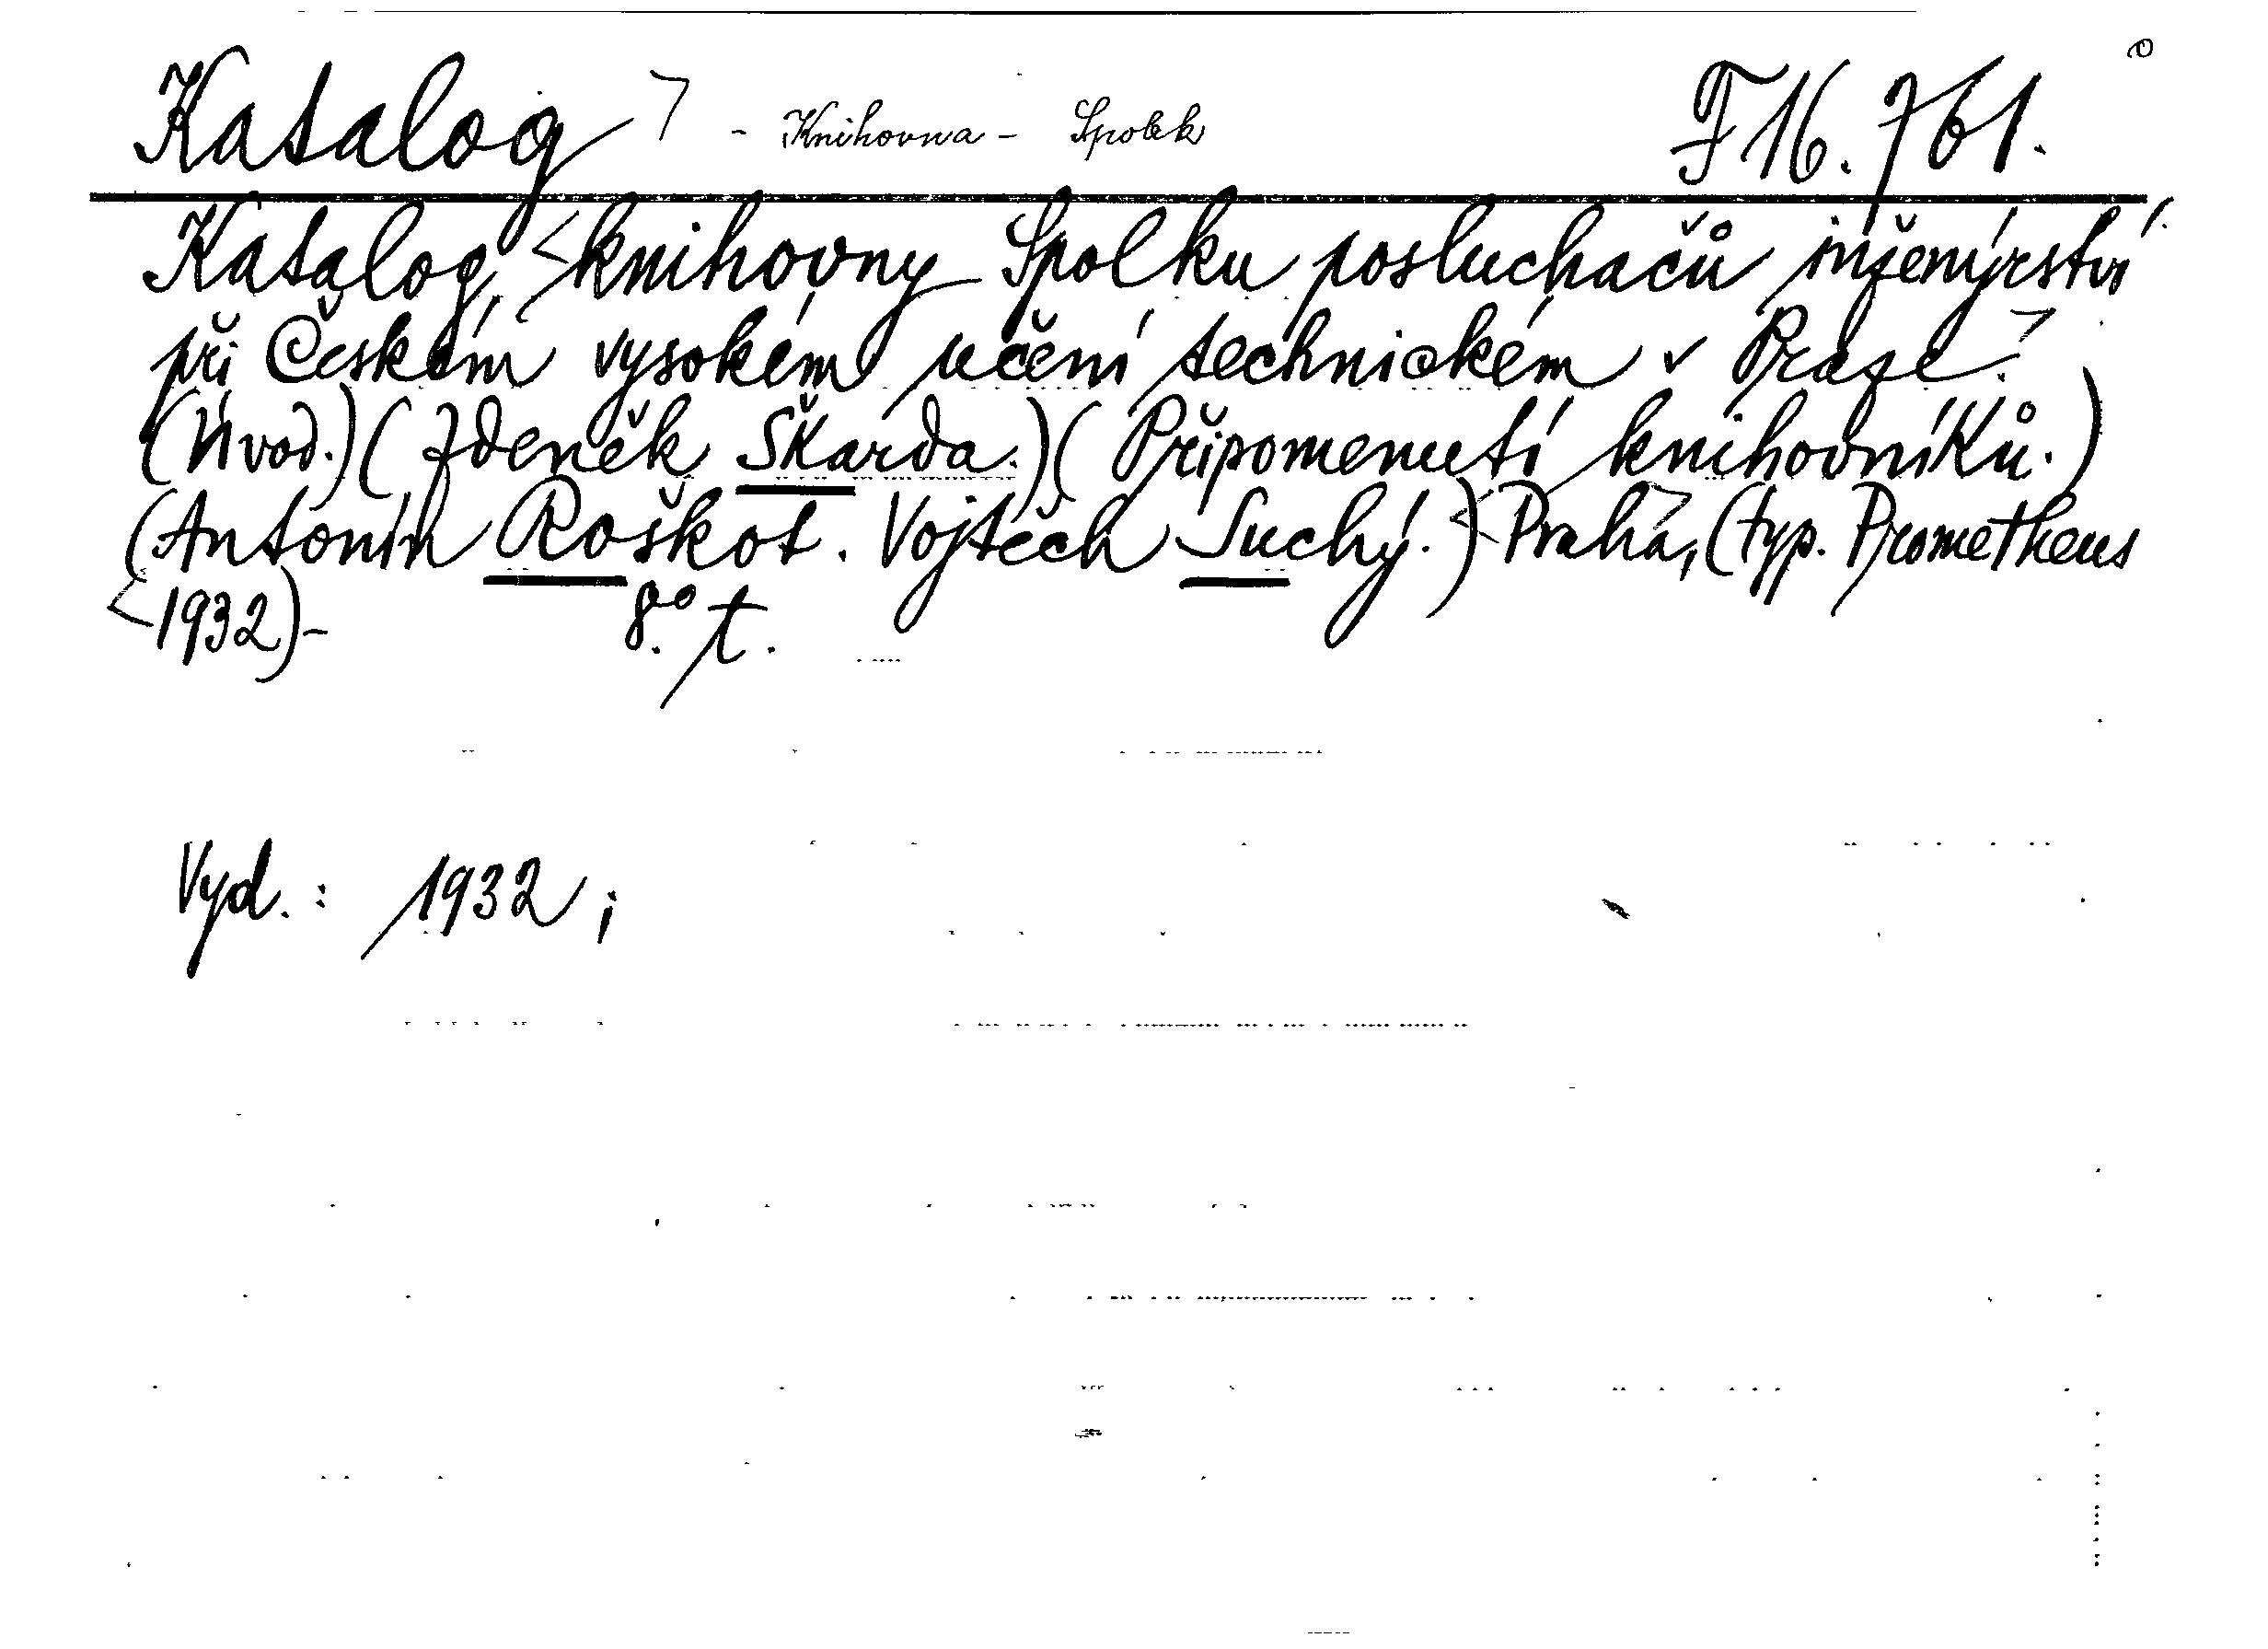 Katalog - Knihovna - Spolek F 16.761.
Katalog knihovny Spolku posluchačů inženýrství
při Českém vysokém učení technickém v Praze.
(Úvod.) (Zdeněk Škarda.) (Připomenutí knihovníků.)
(Antonín Roškot. Vojtěch Suchý.) Praha, (typ. Prometheus
1932)- 8.° t.
Vyd.: 1932;